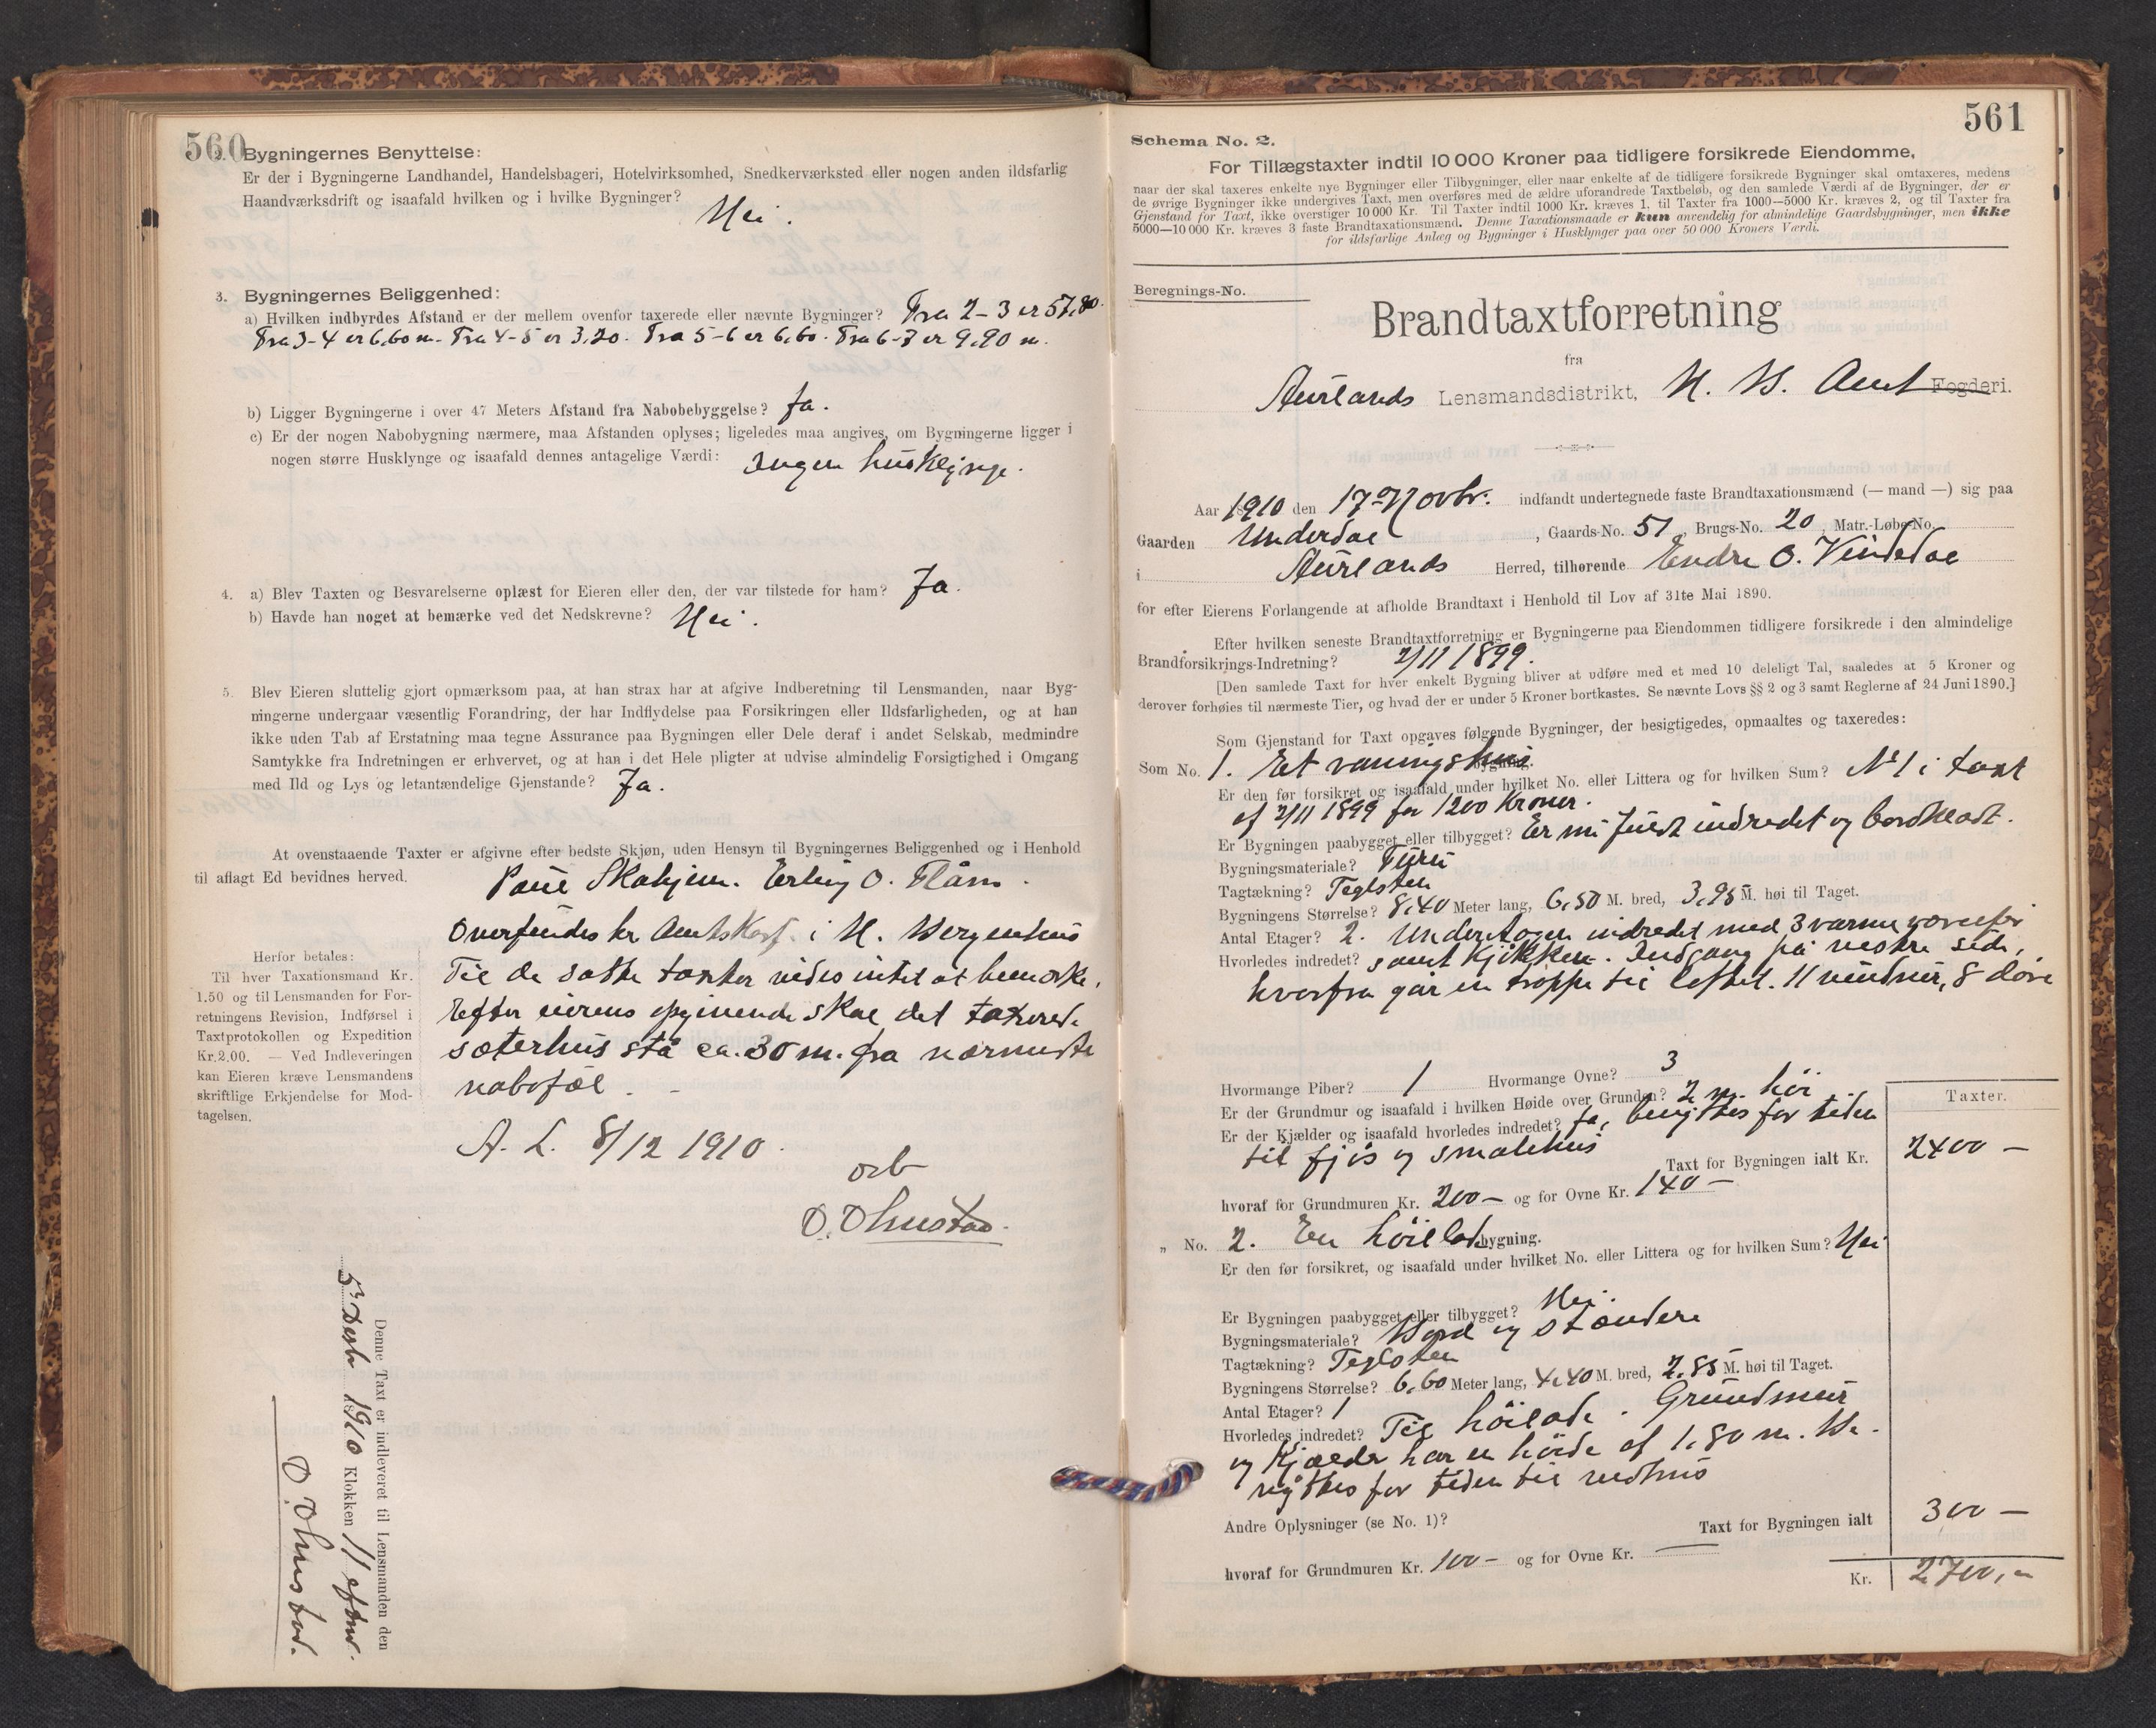 560
2. Bygningernes Benyttelse:
Er der i Bygningerne Landhandel, Handelsbageri, Hotelvirksomhed, Snedkerværksted eller nogen anden ildsfarlig
Haandværksdrift og isaafald hvilken og i hvilke Bygninger?
Nei.
3. Bygningernes Beliggenhed:
a) Hvilken indbyrdes Afstand er der mellem ovenfor taxerede eller nævnte Bygninger? Fra 2-3 er 57,80.
Fra 3-4 er 6,60 m. Fra 4-5 er 3,20. Fra 5-6 er 6,60. Fra 6-7 er 9,90 m.
b) Ligger Bygningerne i over 47 Meters Afstand fra Nabobebyggelse? Ja.
c) Er der nogen Nabobygning nærmere, maa Afstanden oplyses; ligeledes maa angives, om Bygningerne ligger i
nogen større Husklynge og isaafald dennes antagelige Værdi: Ingen husklynge.
4. a) Blev Taxten og Besvarelserne oplæst for Eieren eller den, der var tilstede for ham? Ja.
b) Havde han noget at bemærke ved det Nedskrevne? Nei.
5. Blev Eieren sluttelig gjort opmærksom paa, at han strax har at afgive Indberetning til Lensmanden, naar Byg-
ningerne undergaar væsentlig Forandring, der har Indflydelse paa Forsikringen eller Ildsfarligheden, og at han
ikke uden Tab af Erstatning maa tegne Assurance paa Bygningen eller Dele deraf i andet Selskab, medmindre
Samtykke fra Indretningen er erhvervet, og at han i det Hele pligter at udvise almindelig Forsigtighed i Omgang
med Ild og Lys og letantændelige Gjenstande? Ja.
At ovenstaaende Taxter er afgivne efter bedste Skjøn, uden Hensyn til Bygningernes Beliggenhed og i Henhold
til aflagt Ed bevidnes herved.
Erling O. Flåm.
Oversendes hr Amtskasf. i N. Bergenhus
Til de satte taxter vides intet at bemærke.
Efter eierens opgivende skal det taxerede
sæterhus stå ca. 30 m. fra nærmeste
nabofæl.
A. L. 8/12 1910.
O. Ohnstad.
Herfor betales:
Til hver Taxationsmand Kr.
1.50 og til Lensmanden for For-
retningens Revision, Indførsel i
Taxtprotokollen og Expedition
Kr. 2.00. — Ved Indleveringen
kan Eieren kræve Lensmandens
skriftlige Erkjendelse for Mod-
tagelsen.
Denne Taxt er indleveret til Lensmanden den
5' Desbr 1910 Klokken 11 efterm.
O. Ohnstad.
561
Schema No. 2.
For Tillægstaxter indtil 10 000 Kroner paa tidligere forsikrede Eiendomme,
naar der skal taxeres enkelte nye Bygninger eller Tilbygninger, eller naar enkelte af de tidligere forsikrede Bygninger skal omtaxeres, medens
de øvrige Bygninger ikke undergives Taxt, men overføres med de ældre uforandrede Taxtbeløb, og den samlede Værdi af de Bygninger, der er
Gjenstand for Taxt, ikke overstiger 10 000 Kr. Til Taxter indtil 1000 Kr. kræves 1, til Taxter fra 1000—5000 Kr. kræves 2, og til Taxter fra
5000—10 000 Kr. kræves 3 faste Brandtaxationsmænd. Denne Taxationsmaade er kun anvendelig for almindelige Gaardsbygninger, men ikke
for ildsfarlige Anlæg og Bygninger i Husklynger paa over 50 000 Kroners Værdi.
Beregnings-No.
Brandtaxtforretning
fra
Aurlands Lensmandsdistrikt, N. B. Amt Fogderi.
Aar 1910 den 17' Novbr. indfandt undertegnede faste Brandtaxationsmænd (— mand —) sig paa
Gaarden Underdal, Gaards-No. 51, Brugs-No. 20, Matr.-Løbe-No.
i Aurlands Herred, tilhørende Endre O.
for efter Eierens Forlangende at afholde Brandtaxt i Henhold til Lov af 31te Mai 1890.
Efter hvilken seneste Brandtaxtforretning er Bygningerne paa Eiendommen tidligere forsikrede i den almindelige
Brandforsikrings-Indretning? 2/11 1899.
[Den samlede Taxt for hver enkelt Bygning bliver at udføre med et med 10 deleligt Tal, saaledes at 5 Kroner og
derover forhøies til nærmeste Tier, og hvad der er under 5 Kroner bortkastes. Se nævnte Lovs §§ 2 og 3 samt Reglerne af 24 Juni 1890.]
Som Gjenstand for Taxt opgaves følgende Bygninger, der besigtigedes, opmaaltes og taxeredes:
Som No. 1. Et våningshus bygning.
Er den før forsikret og isaafald under hvilket No. eller Littera og for hvilken Sum? No 1 i taxt
af 2/11 1899 for 1200 Kroner.
Er Bygningen paabygget eller tilbygget? Er nu fuldt indredet og bordklædt.
Bygningsmateriale? Furu
Tagtækning? Teglsten
Bygningens Størrelse? 8,40 Meter lang, 6,50 M. bred, 3,95 M. høi til Taget.
Antal Etager? 2. Underetagen indredet med 3 varme værelser
Hvorledes indredet? samt kjökken. Indgang på vestre side,
hvorfra går en trappe til loftet. 11 vinduer, 8 døre
Hvormange Piber? 1 Hvormange Ovne? 3
Er der Grundmur og isaafald i hvilken Høide over Grunden? 2 m. höi
Er der Kjælder og isaafald hvorledes indredet? Ja, benyttes for tiden
til fjös og smalehus
Taxter.
Taxt for Bygningen ialt Kr. 2400 —
hvoraf for Grundmuren Kr. 200 — og for Ovne Kr. 140 —
„ No. 2. En höilade bygning.
Er den før forsikret, og isaafald under hvilket No. eller Littera og for hvilken Sum? Nei
Er Bygningen paabygget eller tilbygget? Nei.
Bygningsmateriale? Bord og stændere
Tagtækning? Teglsten
Bygningens Størrelse? 6,60 Meter lang, 4,40 M. bred, 2,85 M. høi til Taget.
Antal Etager? 1
Hvorledes indredet? Til höilade. Grundmur
og kjælder har en höide af 1,80 m. Be-
nyttes for tiden til vedhus
Andre Oplysninger (se No. 1)?
Taxt for Bygningen ialt 300 —
hvoraf for Grundmuren Kr. 100 — og for Ovne Kr. —
Kr. 2700,—